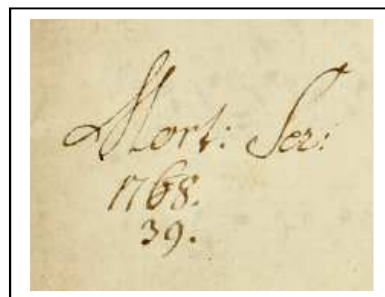 Mort: Ser:
1768.
39.